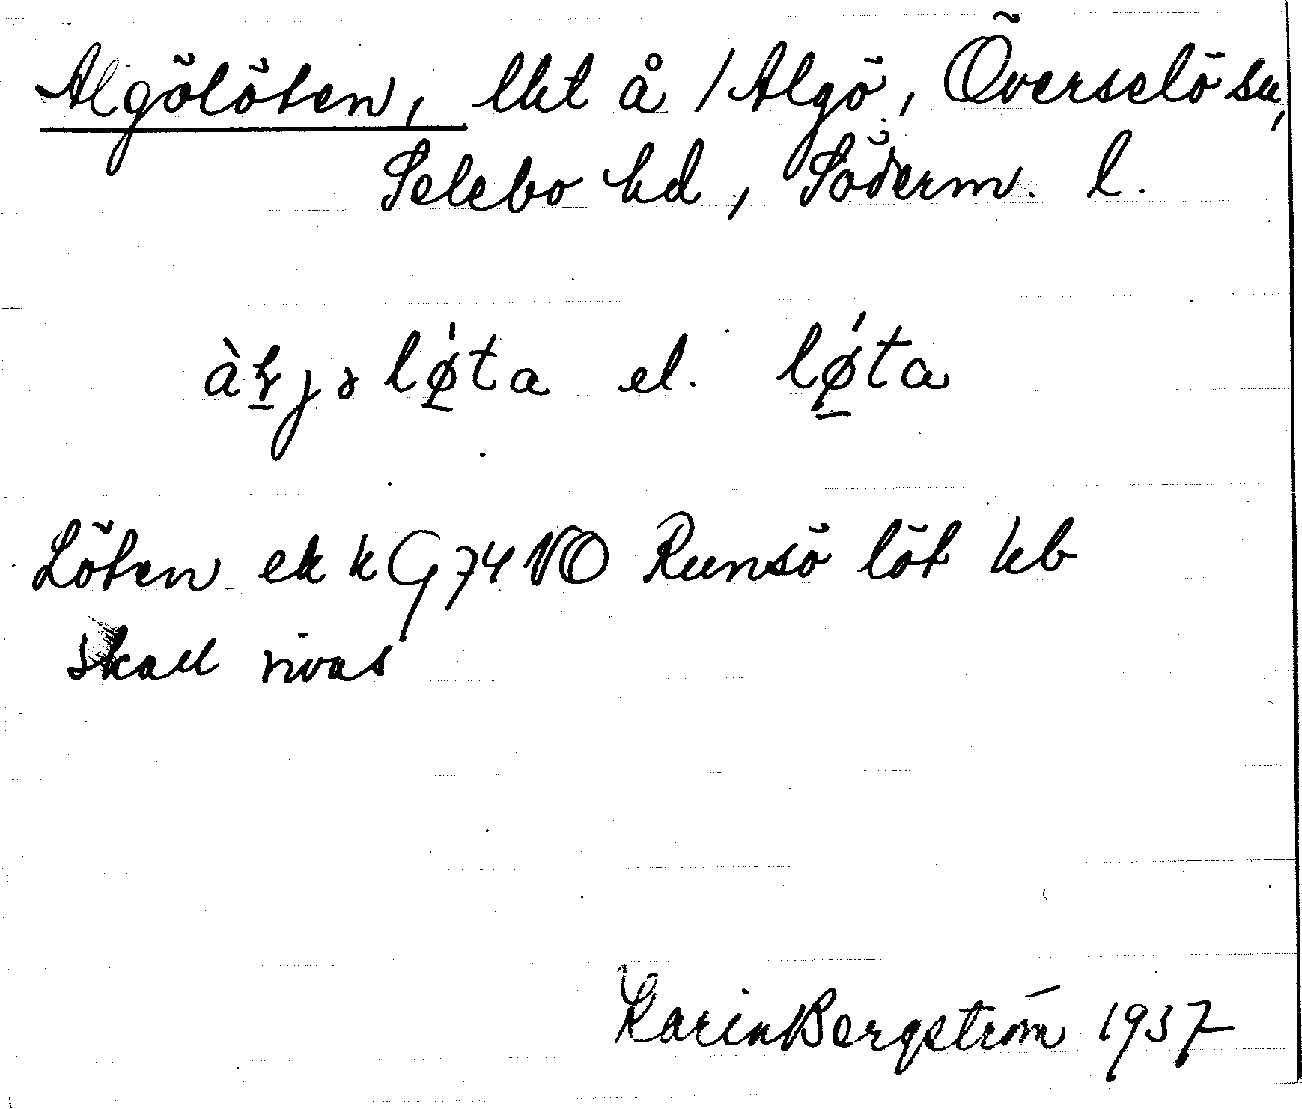 Algölöten, lht å /Algö, Överselö sn,
Selebo hd, Söderm. l.
àḻjə lǿ̱ta el. lǿ̱ta
Löten ek k G74 NO Runsö löt kb
skall rivas
Karin Bergström 1937